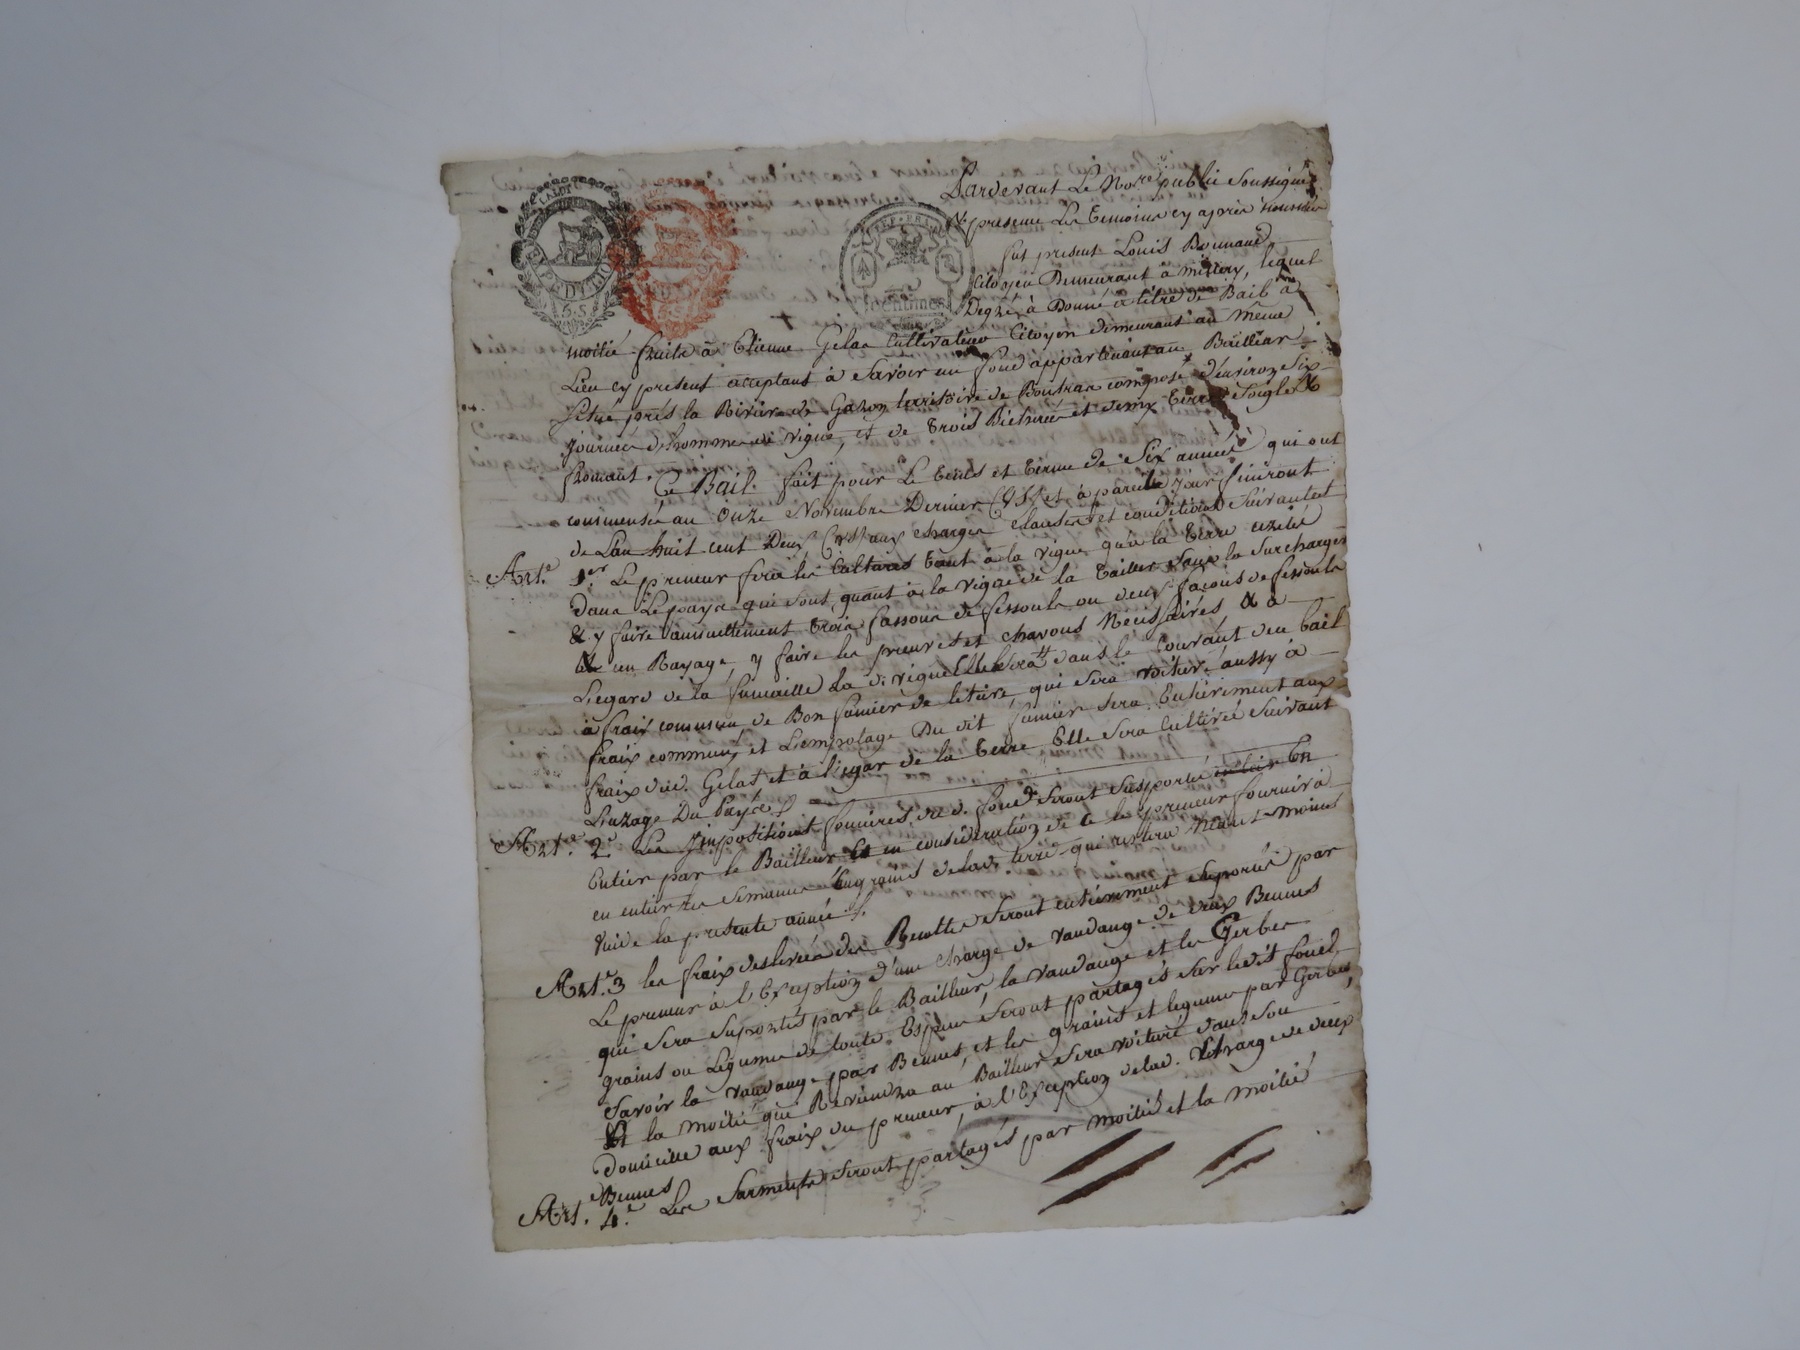 Pardevant Le No.re public Soussigné
presence Les Temoins cy après nommés
fut present Louis Bonnand
Citoyen Demeurant à millery, lequel
Degré à Donné à titre de Bail a
moitié fruits à Etienne Gelas Cultivateur Citoyen demeurant au même
Lieu cy present acceptant à Savoir un fond appartenant au Bailliar
Situé prés la Riviere de Gazon territoire de composé d'environ Six
journées d'homme de vigne, et de Trois Bicherées et demy Terre à Soigle &
froment. Ce Bail fait pour Le tems et terme de Six années qui ont
commensée au Onze Novembre Dernier et à pareille jour finiront
de L'an huit cent Deux aux charges clauses et conditions Suivantes
Art.e 1.er Le preneur fera les Cultures tant à la vigne qu'a la Terre uzités
dans Le pays qui sont, quant à la vigne de la Tailler Sans la Surcharger
& y faire annuellement trois fassons de fessoule ou deux façons de fessoule
un Rayage, y faire les preuves et chavons Nécessaires & a
L'egard de la fumaille La d. vigne Elle Sera dans le Courant du bail
à frais commun de Bon fumier de letiere qui Sera voituré aussy à
fraix commun, et L'emplotage Du dit fumier Sera Entiérement aux
fraix dud. Gelas et à l'egar de la Terre Elle Sera Cultivée Suivant
L'uzage Du Pays
Art.e 2.e Les Impositions foncieres du d. fond Seront Susporté En
Entier par le Bailleur en considération de Ce le preneur fournira
en entier les Semances Engrains de lad. terre qui restera Neant-moins
vuide la presente année
Art.e 3 les fraix des levées des Recoltes Seront entiérement Suportés par
Le preneur à l'Exception d'une charge de vandange de deux Bennes
qui Sera Suportés par le Bailleur, la vandange et les Gerbes
grains ou Legumes de toute Espece Seront partagés Sur le dit fond,
Savoir la vandange par Bennes, et les grains et legumes par Gerbes,
Et la moitié qui Reviendra au Bailleur Sera voituré dans Son
Domicille aux fraix du preneur, à l'Exception de lad. charge de deux
Bennes
Art. 4.e Les Sarments Seront partagés par moitié et la moitié